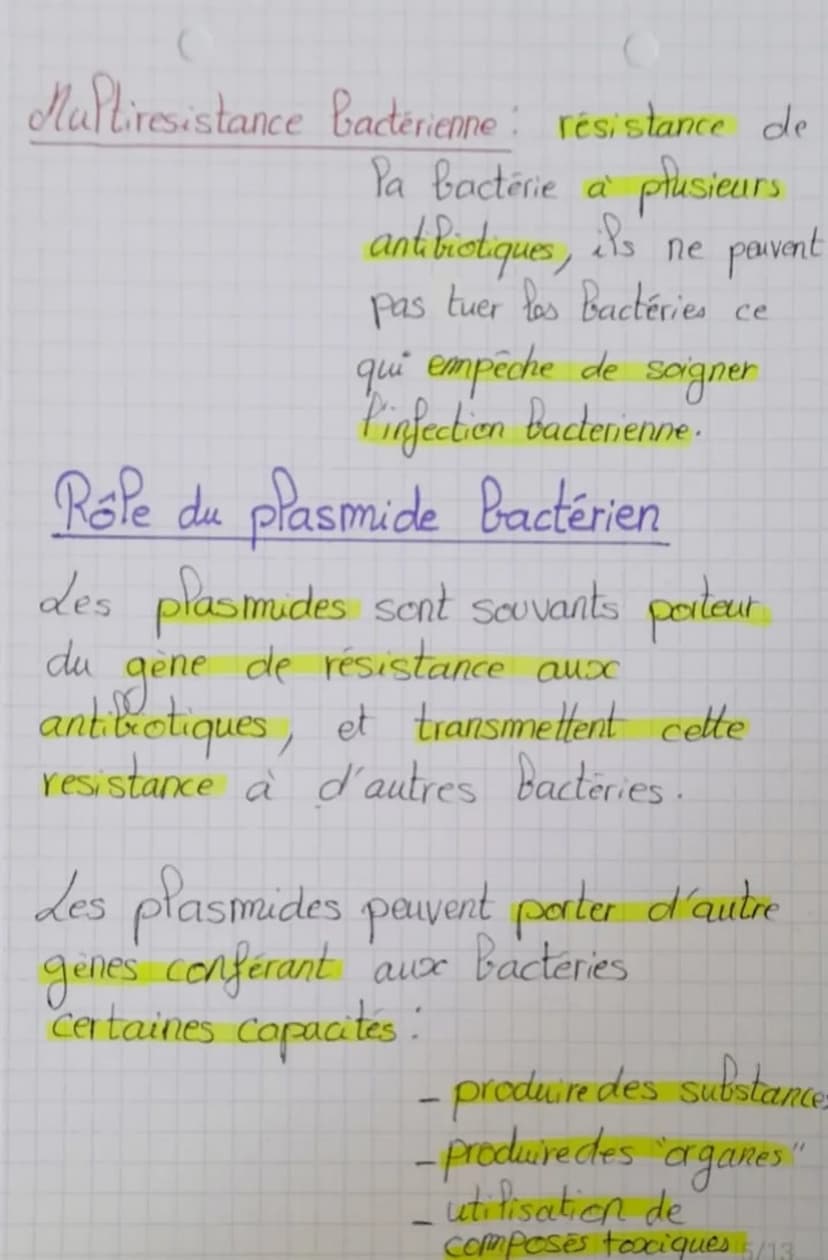 Multiresistance bactérienne : résistance de
la bactérie à plusieurs
antibiotiques, ils ne peuvent
pas tuer les bactéries ce
qui empêche de soigner
l'infection bacterienne.
Rôle du plasmide bactérien
Les plasmides sont souvants porteur
du gène de résistance aux
antibiotiques, et transmettent cette
resistance à d'autres bactéries.
Les plasmides peuvent porter d'autre
gènes conférant aux bacteries
certaines capacités :
- produire des substances
- produire des "organes"
- utilisation de
composés toxiques